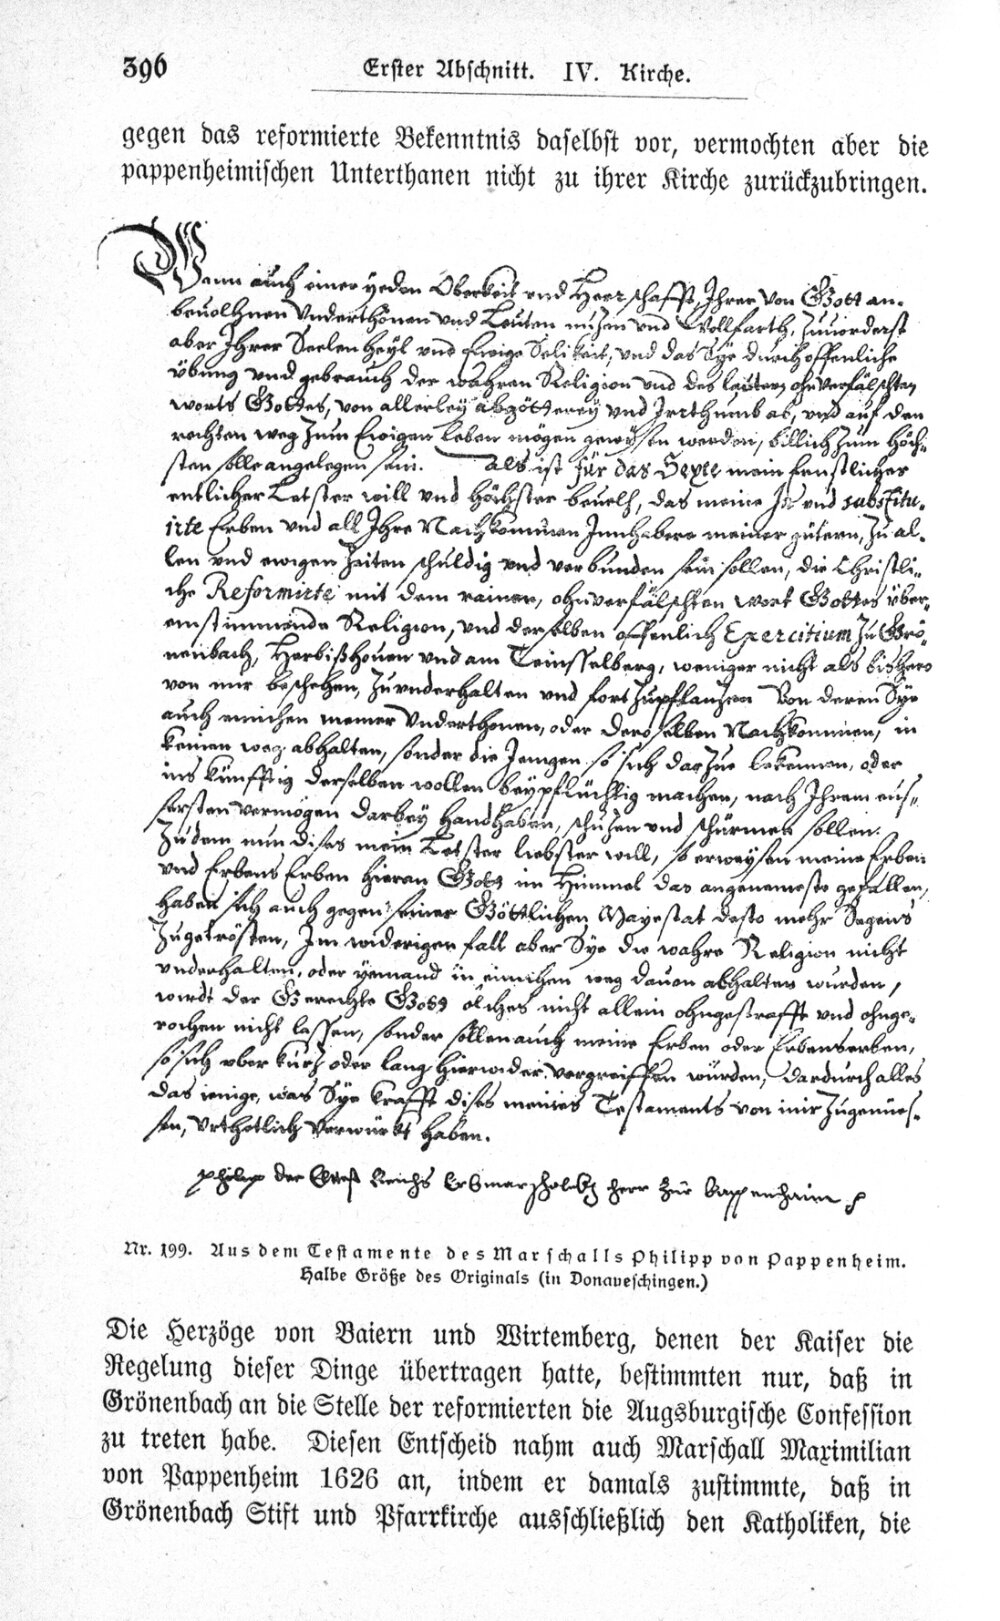 396
Erster Abschnitt. IV. Kirche.
gegen das reformierte Bekenntnis daselbst vor, vermochten aber die
pappenheimischen Unterthanen nicht zu ihrer Kirche zurückzubringen.
Wenn auch einer yeden Oberkeit vnd Heerschafft, Ihrer von Gott an-
beuolhnen Vnderthonen vnd Leuten nuzen vnd Wollfarth, Zuuorderst
aber Ihrer Seelen Heyl vnd Ewige Selikeit, vnd das Sye durch offenliche
übung vnd gebrauch der wahren Religion vnd des lautern ohnverfälschten
worts Gottes, von allerley abgötterey vnd Irrthumb ab, vnd auf den
rechten weg zum Ewigen leben mögen gewysen werden, billich zum höch-
sten solle angelegen sein. Als ist für das Sexte mein Ernstlicher
entlicher Letster will vnd höchster beuelh, das meine vnd substitu-
irte Erben vnd all Ihre Nachkommen Innhabere meiner gütern, zu al-
len vnd ewigen Zeiten schuldig vnd verbunden sein sollen, die Christli-
che Reformirte mit dem rainen, ohnverfälschten wort Gottes über-
einstimmende Religion, vnd derselben offenlich Exercitium zu Grö-
nenbach, Herbißhouen vnd am Teinsselberg, weniger nicht als bishero
von mir beschehen, zuvnderhalten vnd fortzupflanzen Von deren Sye
auch einichen meiner Vnderthonen, oder deroselben Nachkommen, in
keinen weg abhalten, sonder die Jenigen so sich darzue bekennen, oder
ins künfftig derselben wollen beypflüchtig machen, nach Ihrem eus-
sersten vermögen darbey handhaben, schuzen vnd schürmen sollen.
Zudem nun dises mein Letster liebster will, so erweysen meine Erben
vnd Erbens Erben hieran Gott im Himmel das angenemeste gefallen,
haben sich auch gegen seiner Göttlichen Mayestat desto mehr Segens
zugetrösten, Im widerigen fall aber Sye die wahre Religion nicht
vnderhalten, oder yemand in einichen weg dauon abhalten wurden,
wirdt der Gerechte Gott solches nicht allein ohngestrafft vnd ohnge-
rochen nicht lassen, sonder sollen auch meine Erben oder Erbenserben,
so sich vber kurz oder lang hierwider vergreiffen würden, dardurch alles
das ienige, was Sye krafft dises meines Testaments von mir zugenües-
sen, vrthetlich verwürkt haben.
philip der Eltest Reichs Erbmarschalckh herr zür bappenhaim
Nr. 199. Aus dem Testamente des Marschalls Philipp von Pappenheim.
Halbe Größe des Originals (in Donaueschingen.)
Die Herzöge von Baiern und Wirtemberg, denen der Kaiser die
Regelung dieser Dinge übertragen hatte, bestimmten nur, daß in
Grönenbach an die Stelle der reformierten die Augsburgische Confession
zu treten habe. Diesen Entscheid nahm auch Marschall Maximilian
von Pappenheim 1626 an, indem er damals zustimmte, daß in
Grönenbach Stift und Pfarrkirche ausschließlich den Katholiken, die